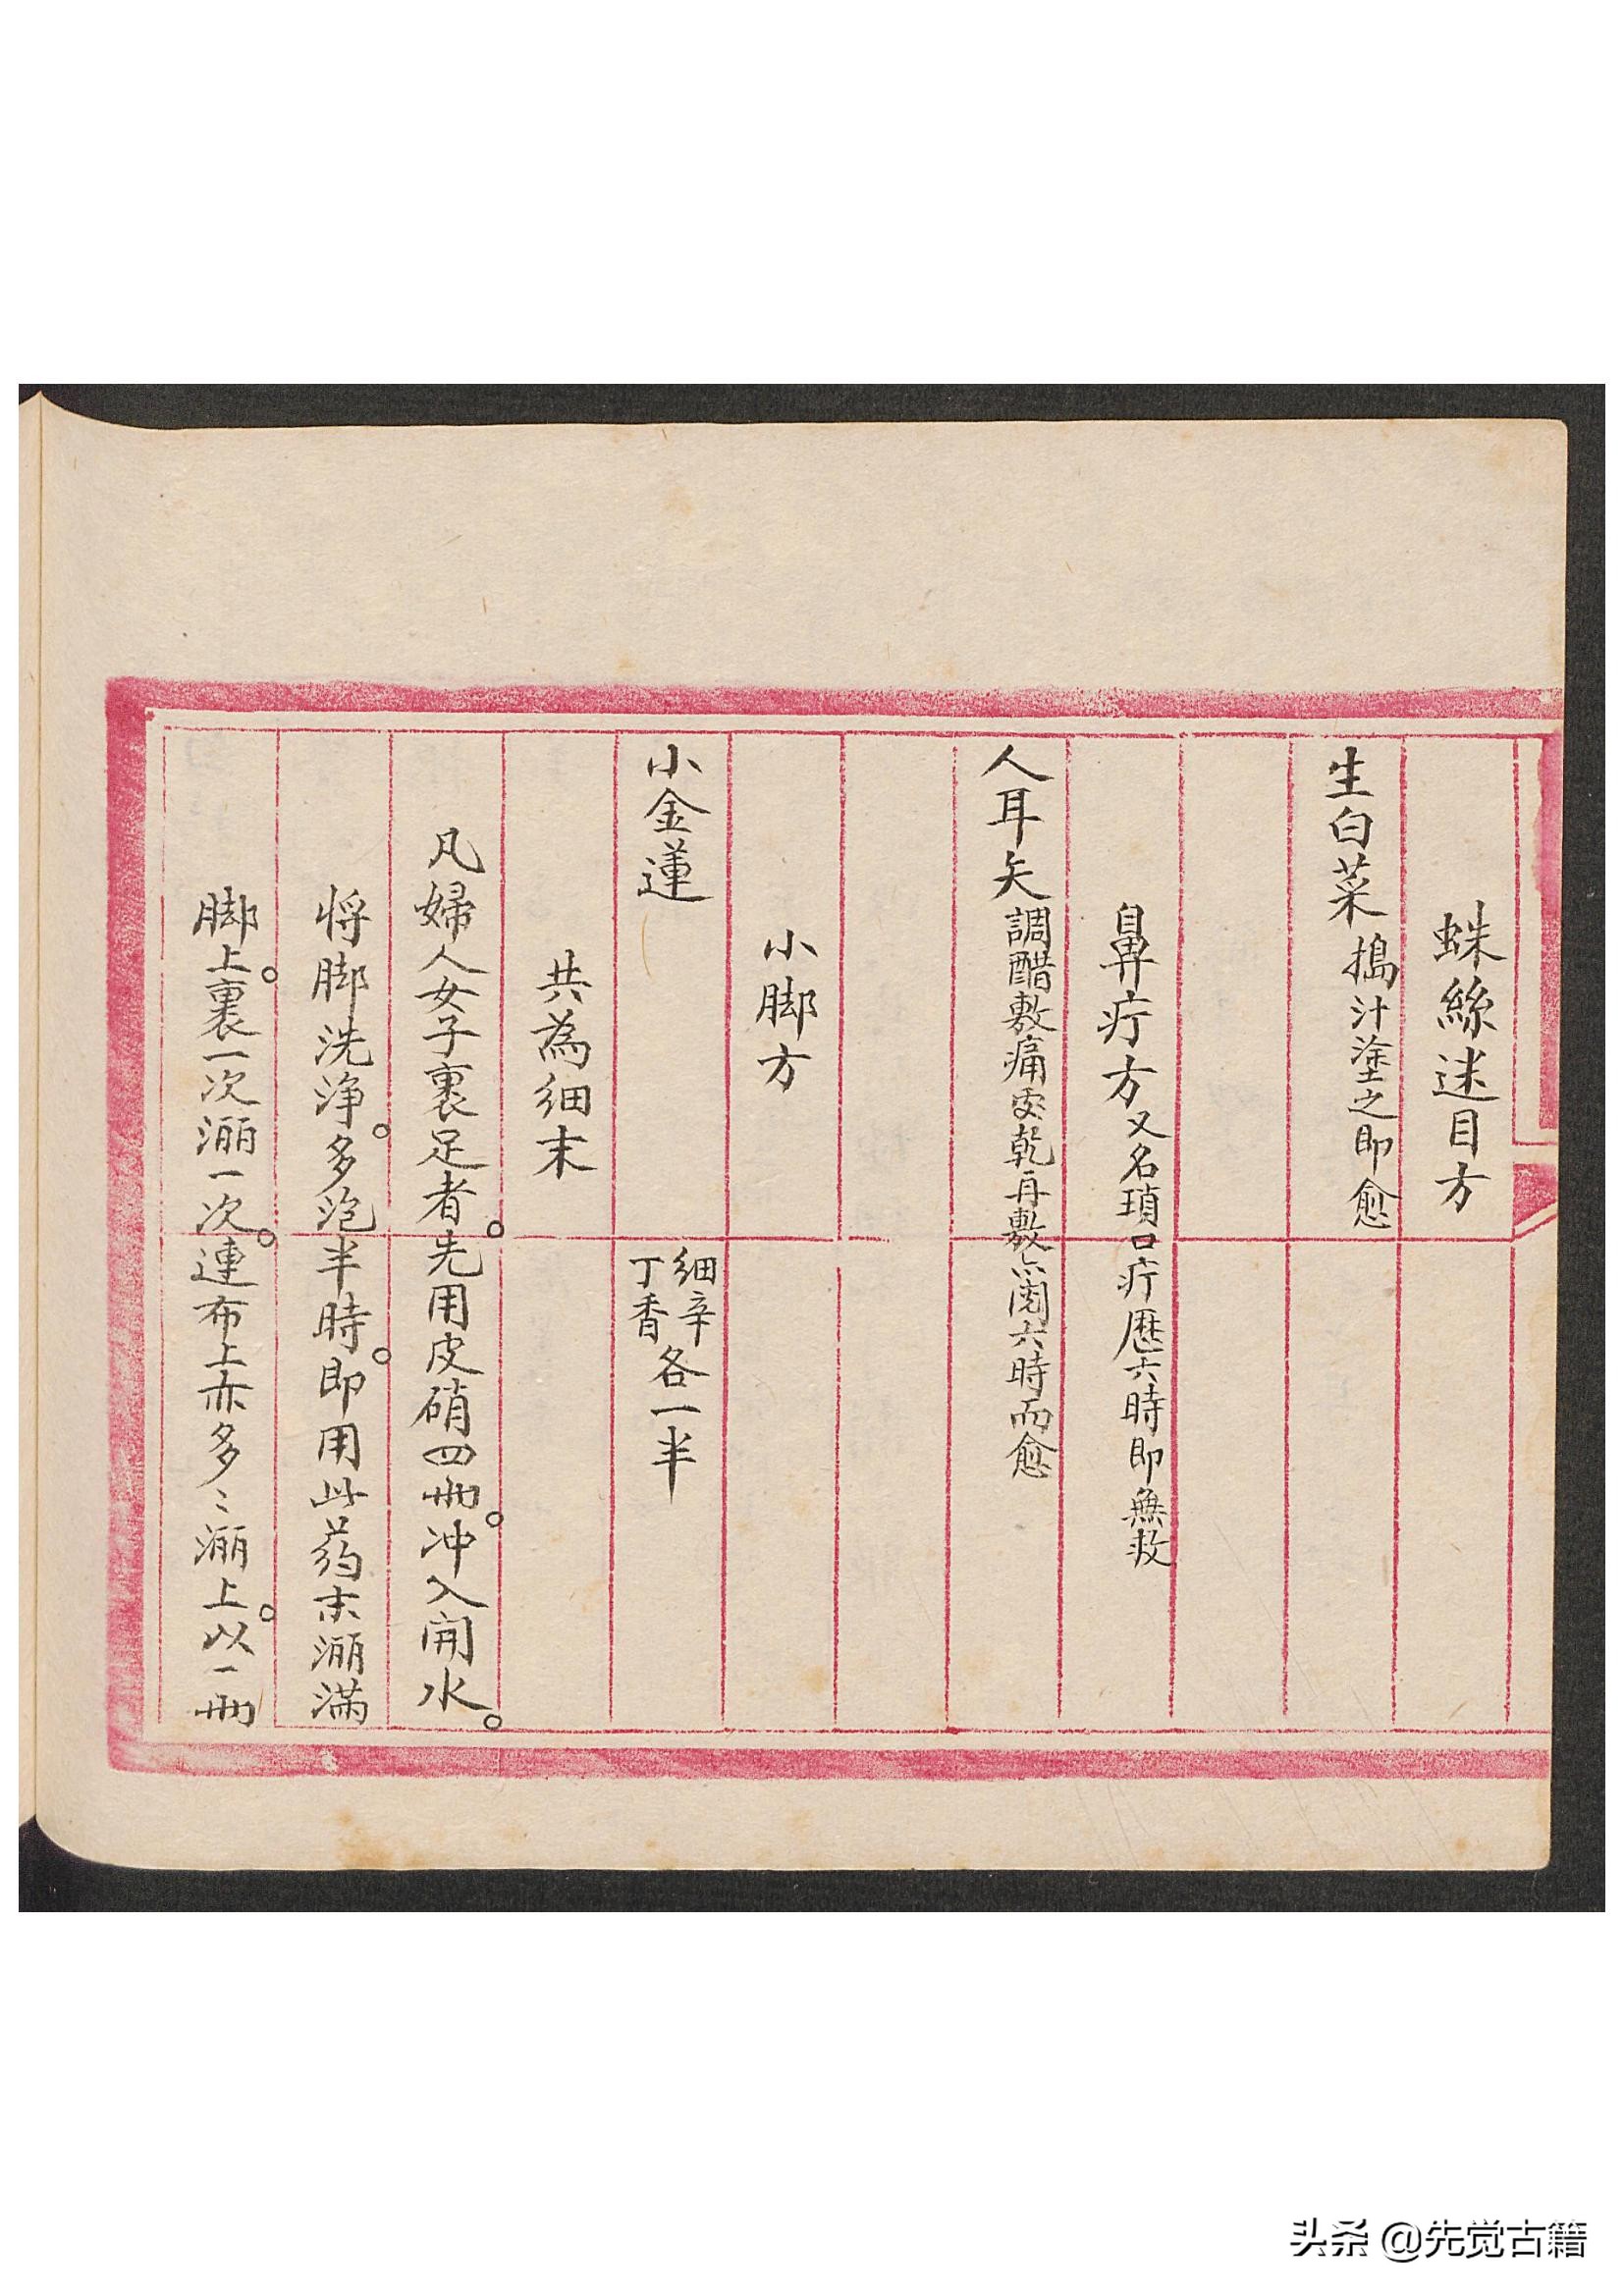 蛛絲迷目方
生白菜搗汁塗之即愈
鼻疔方又名瑣口疔歷六時即無救
人耳矢調醋敷痛处乾再敷六時而愈
小脚方
小金蓮
細辛
丁香
各一半
共為細末
凡婦人女子裹足者。先用皮硝四兩。冲入開水。
将脚洗净。多泡半時。即用此药末灑滿
脚上。裹一次灑一次。連布上亦多〻灑上。以一兩
头条 @先觉古籍